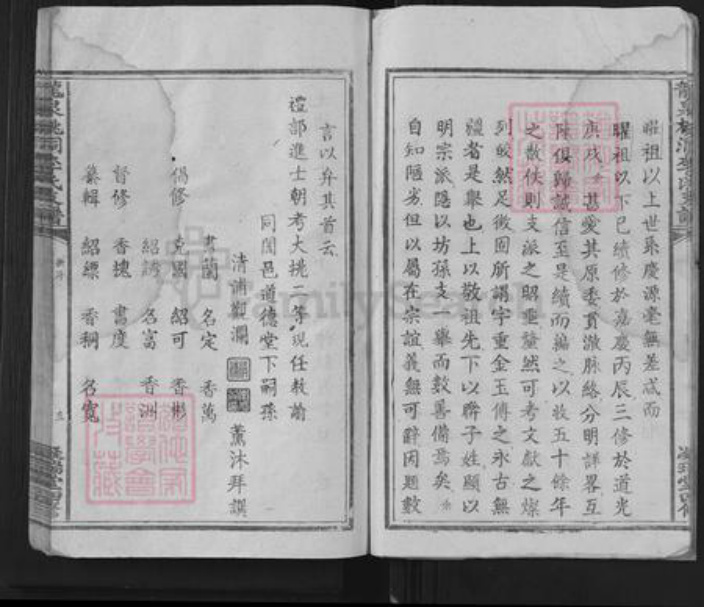 昭祖以上世系慶源毫無差忒而
曜祖以下已續修於嘉慶丙辰三修於道光
庚戌甚愛其原委貫澈脉絡分明詳畧互
陳俱歸誠信至是續而編之以故五十餘年
之散佚則支派之昭垂釐然可考文獻之燦
列皎然足徵固所謂字重金玉傳之永古無
疆者是舉也上以敬祖先下以聯子姓顯以
明宗派隱以坊孫支一舉而數善備焉矣
自知陋劣但以屬在宗誼義無可辭因題數
言以弁其首云
禮部進士朝考大挑二等現任教諭
同閭邑道德堂下嗣孫
清浦觀瀾 薰沐拜譔
書蘭 名定 香萬
倡修 克國 紹可 香彬
紹誘 名富 香洲
督修 香塊 書度
纂輯 紹縹 香稠 名寬
FamilySearch